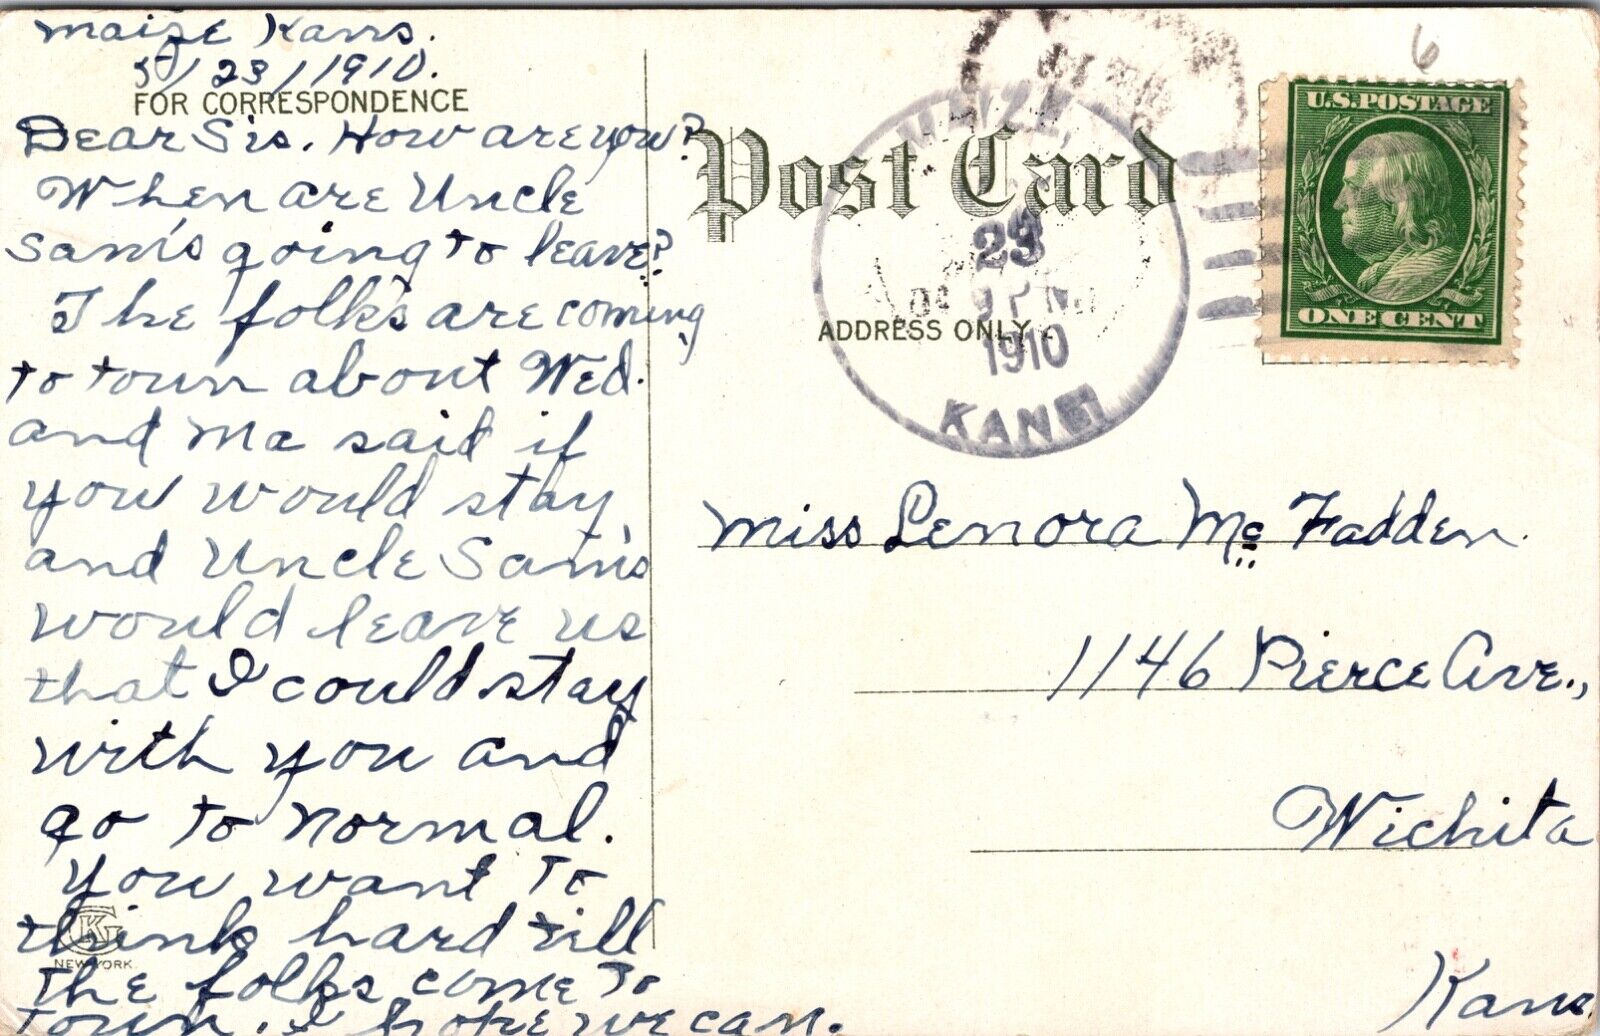 Maize Kans.
5/23/1910.
FOR CORRESPONDENCE
Dear Sis. How are you?
When are Uncle
Sam's going to leave?
The folks are coming
to town about Wed.
and Ma said if
you would stay
and Uncle Sam's
would leave us
that I could stay
with you and
go to Normal.
You want to
think hard till
the folks come to
town. I hope we can.
GK
NEW YORK.
Post Card
ADDRESS ONLY
23
9 PM
1910
KANS
6
U.S. POSTAGE
ONE CENT
Miss Lenora Mc Fadden.
1146 Pierce Ave.,
Wichita
Kans.